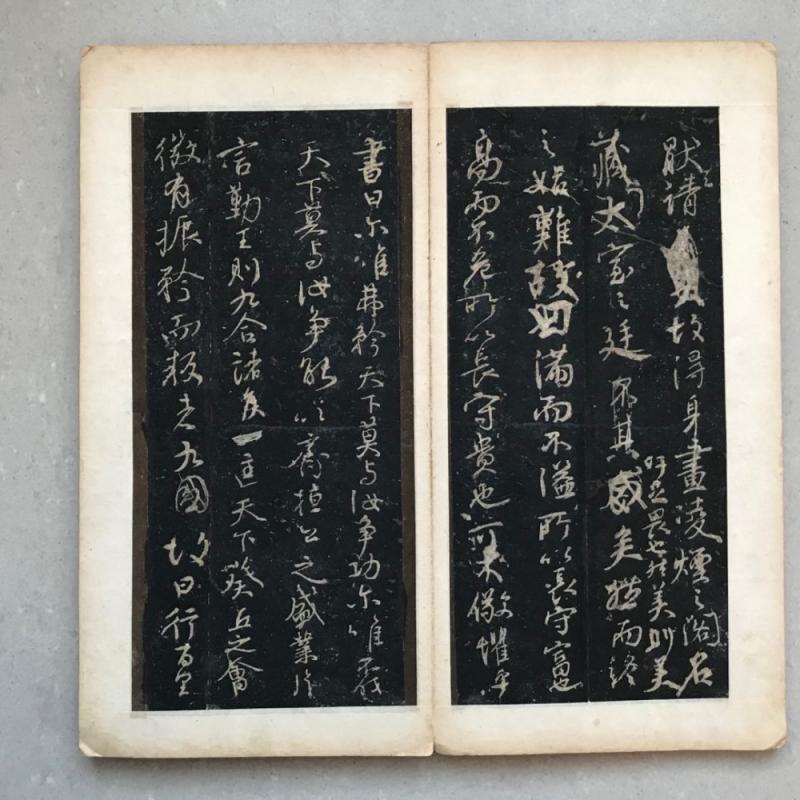 猒請故得身畫凌煙之閣名
藏太室之廷吁足畏也然美則美矣然而終
之始難故曰滿而不溢所以長守富也
高而不危所以長守貴也可不儆懼乎
書曰尒唯弗矜天下莫与汝爭功尒唯不伐
天下莫与汝爭能以齊桓公之盛業片
言勤王則九合諸侯一匡天下葵丘之會
微有振矜而叛者九國故曰行百里